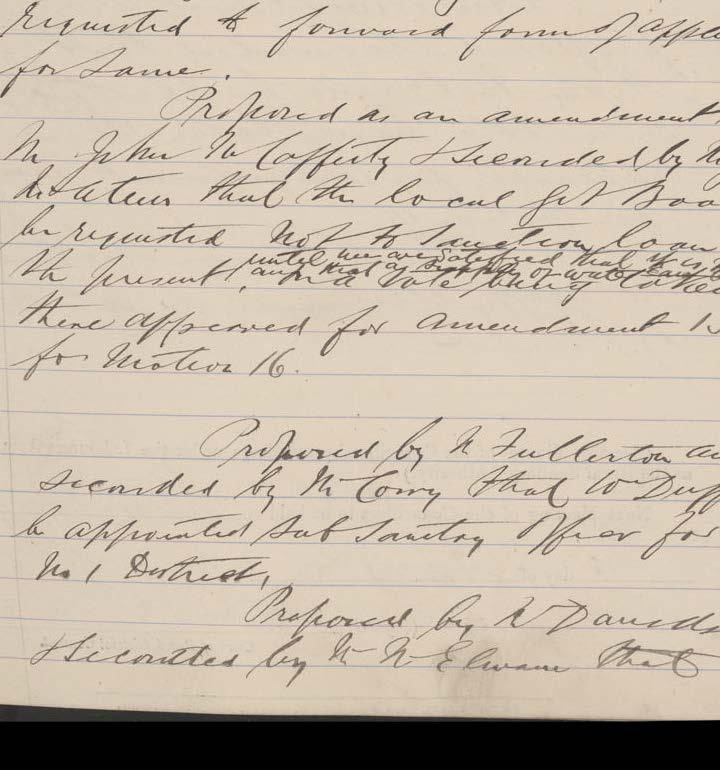 requested to forward form of appli
for same.
Proposed as an amendment
Mr John McCafferty & seconded by M
that the local Govt Boa
be requested not to sanction loan
until we are satisfied that it is
and that a supply of water can
the present, and a vote being taken
there appeared for amendment 15
for Motion 16.
Proposed by Mr Fullerton an
seconded by Mr Corry that Wm Duf
be appointed Sub Sanitry Officer for
No 1 District,
Proposed by Mr Davids
& seconded by Mr McElwaine that